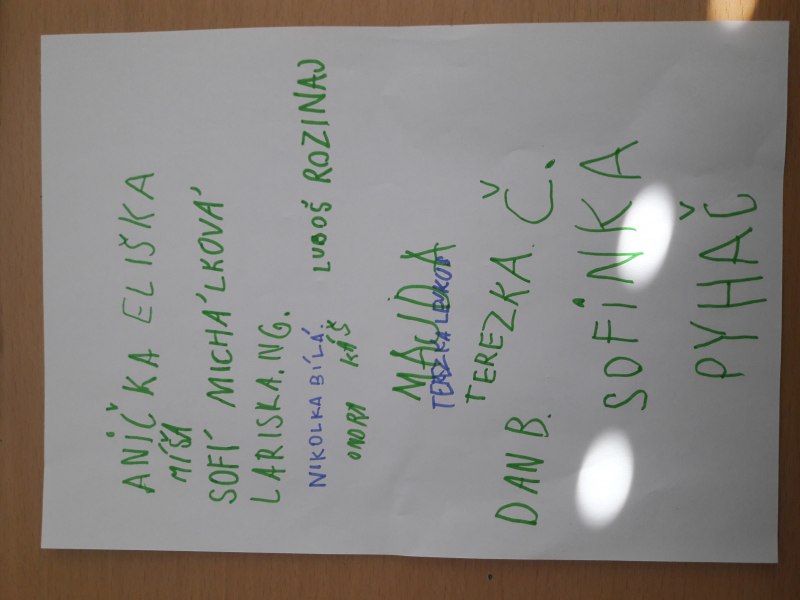 ANIČKA ELIŠKA
MÍŠA
SOFÍ MICHÁLKOVÁ
LARISKA.NG.
NIKOLKA BÍLÁ.
LUBOŠ ROZINAJ
ONDRA KÁŠ
MAJDA
TEREZKA. Č.
DAN B.
SOFINKA
PYHAČ